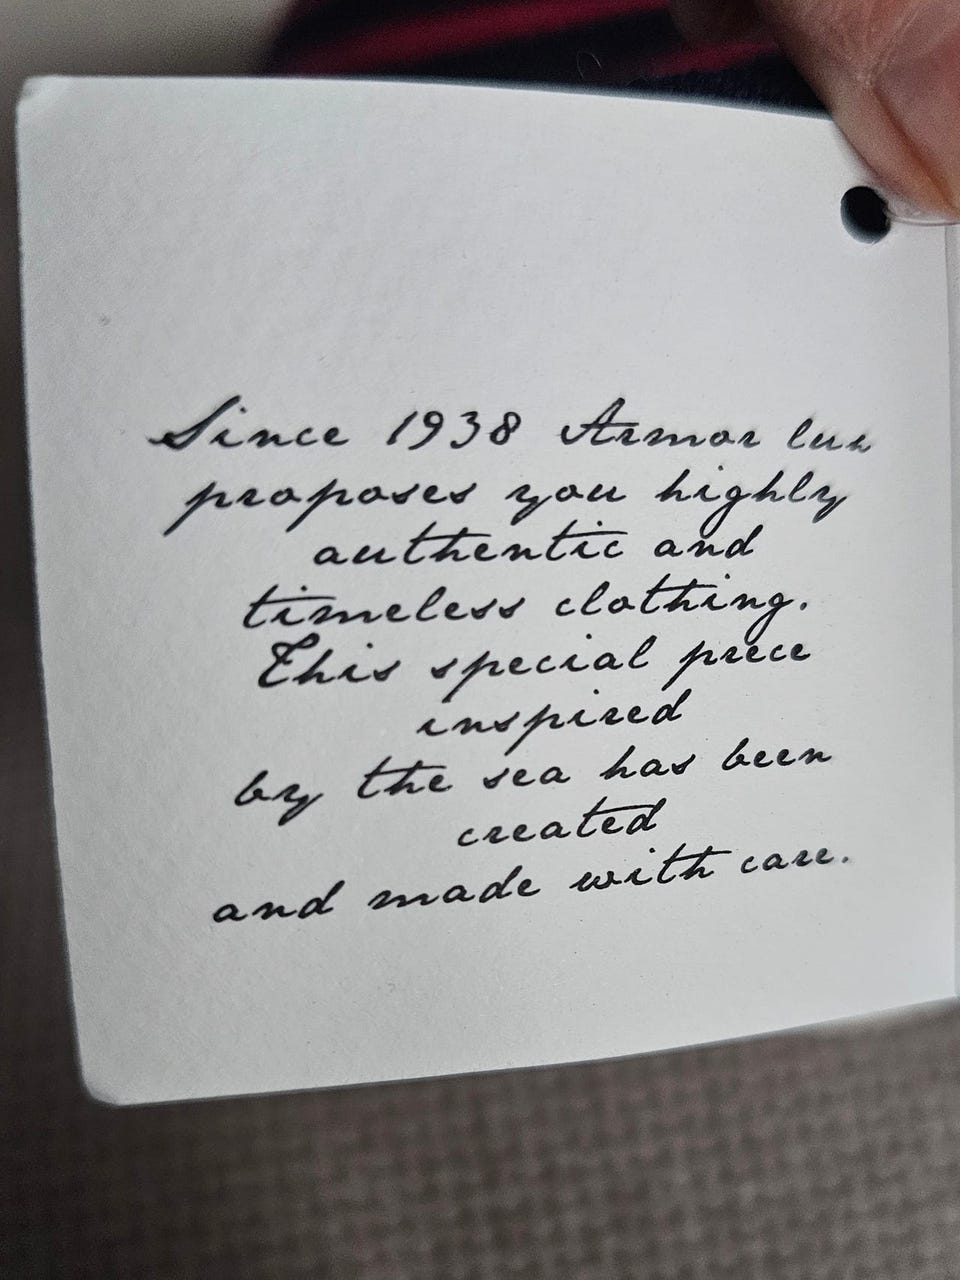 Since 1938 Armor lux
proposes you highly
authentic and
timeless clothing.
This special piece
inspired
by the sea has been
created
and made with care.